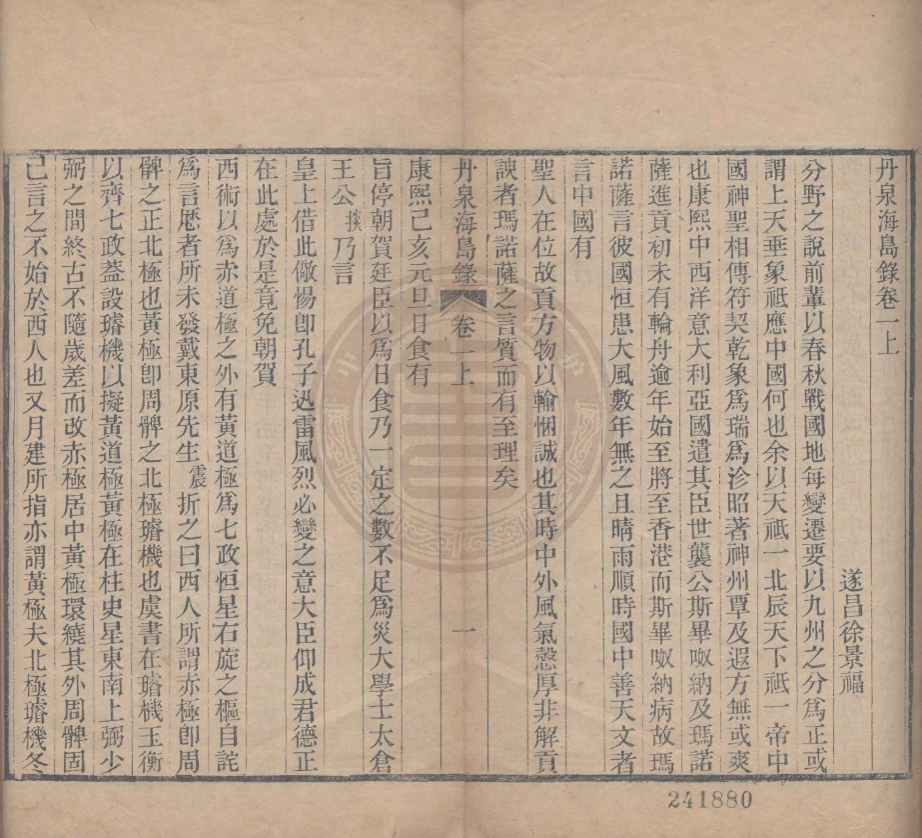 丹泉海島錄卷一上
遂昌徐景福
分野之說前輩以春秋戰國地每變遷要以九州之分爲正或
謂上天垂象祗應中國何也余以天祗一北辰天下祗一帝中
國神聖相傳符契乾象爲瑞爲沴昭著神州覃及遐方無或爽
也康熙中西洋意大利亞國遣其臣世襲公斯畢呶納及瑪諾
薩進貢初未有輪舟逾年始至將至香港而斯畢呶納病故瑪
諾薩言彼國恒患大風數年無之且晴雨順時國中善天文者
言中國有
聖人在位故貢方物以輸悃誠也其時中外風氣慤厚非解貢
諛者瑪諾薩之言質而有至理矣
丹泉海島錄 卷一上 一
康熙己亥元旦日食有
旨停朝賀廷臣以爲日食乃一定之數不足爲災大學士太倉
王公掞乃言
皇上借此儆惕卽孔子迅雷風烈必變之意大臣仰成君德正
在此處於是竟免朝賀
西術以爲赤道極之外有黃道極爲七政恒星右旋之樞自詫
爲言厯者所未發戴東原先生震折之曰西人所謂赤極卽周
髀之正北極也黃極卽周髀之北極璿機也虞書在璿機玉衡
以齊七政蓋設璿機以擬黃道極黃極在柱史星東南上弼少
弼之間終古不隨歲差而改赤極居中黃極環繞其外周髀固
己言之不始於西人也又月建所指亦謂黃極夫北極璿機冬
241880